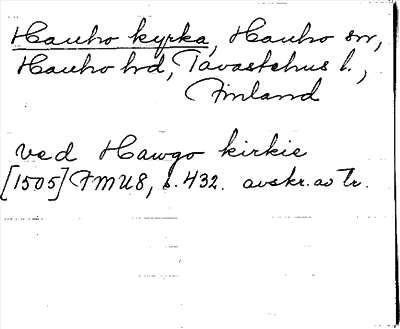 Hauho kyrka, Hauho sn,
Hauho hd, Tavastehus l.,
Finland
ved Hawgo kirkie
[1505] FMU8, s. 432. avskr. av Tr.